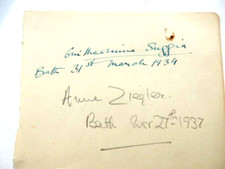 Guilhermina Suggia
Bath 31st March 1934
Anne Ziegler.
Bath Nov 27th-1937.